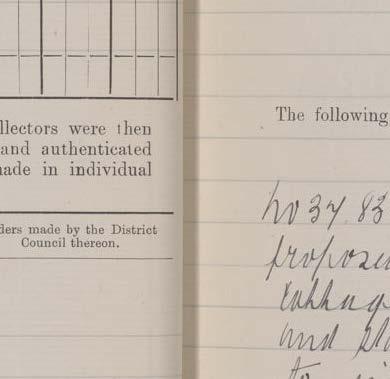 llectors were then
and authenticated
nade in individual
ders made by the District
Council thereon.
The following
No 34. 83
propose
Cabbag
and
to